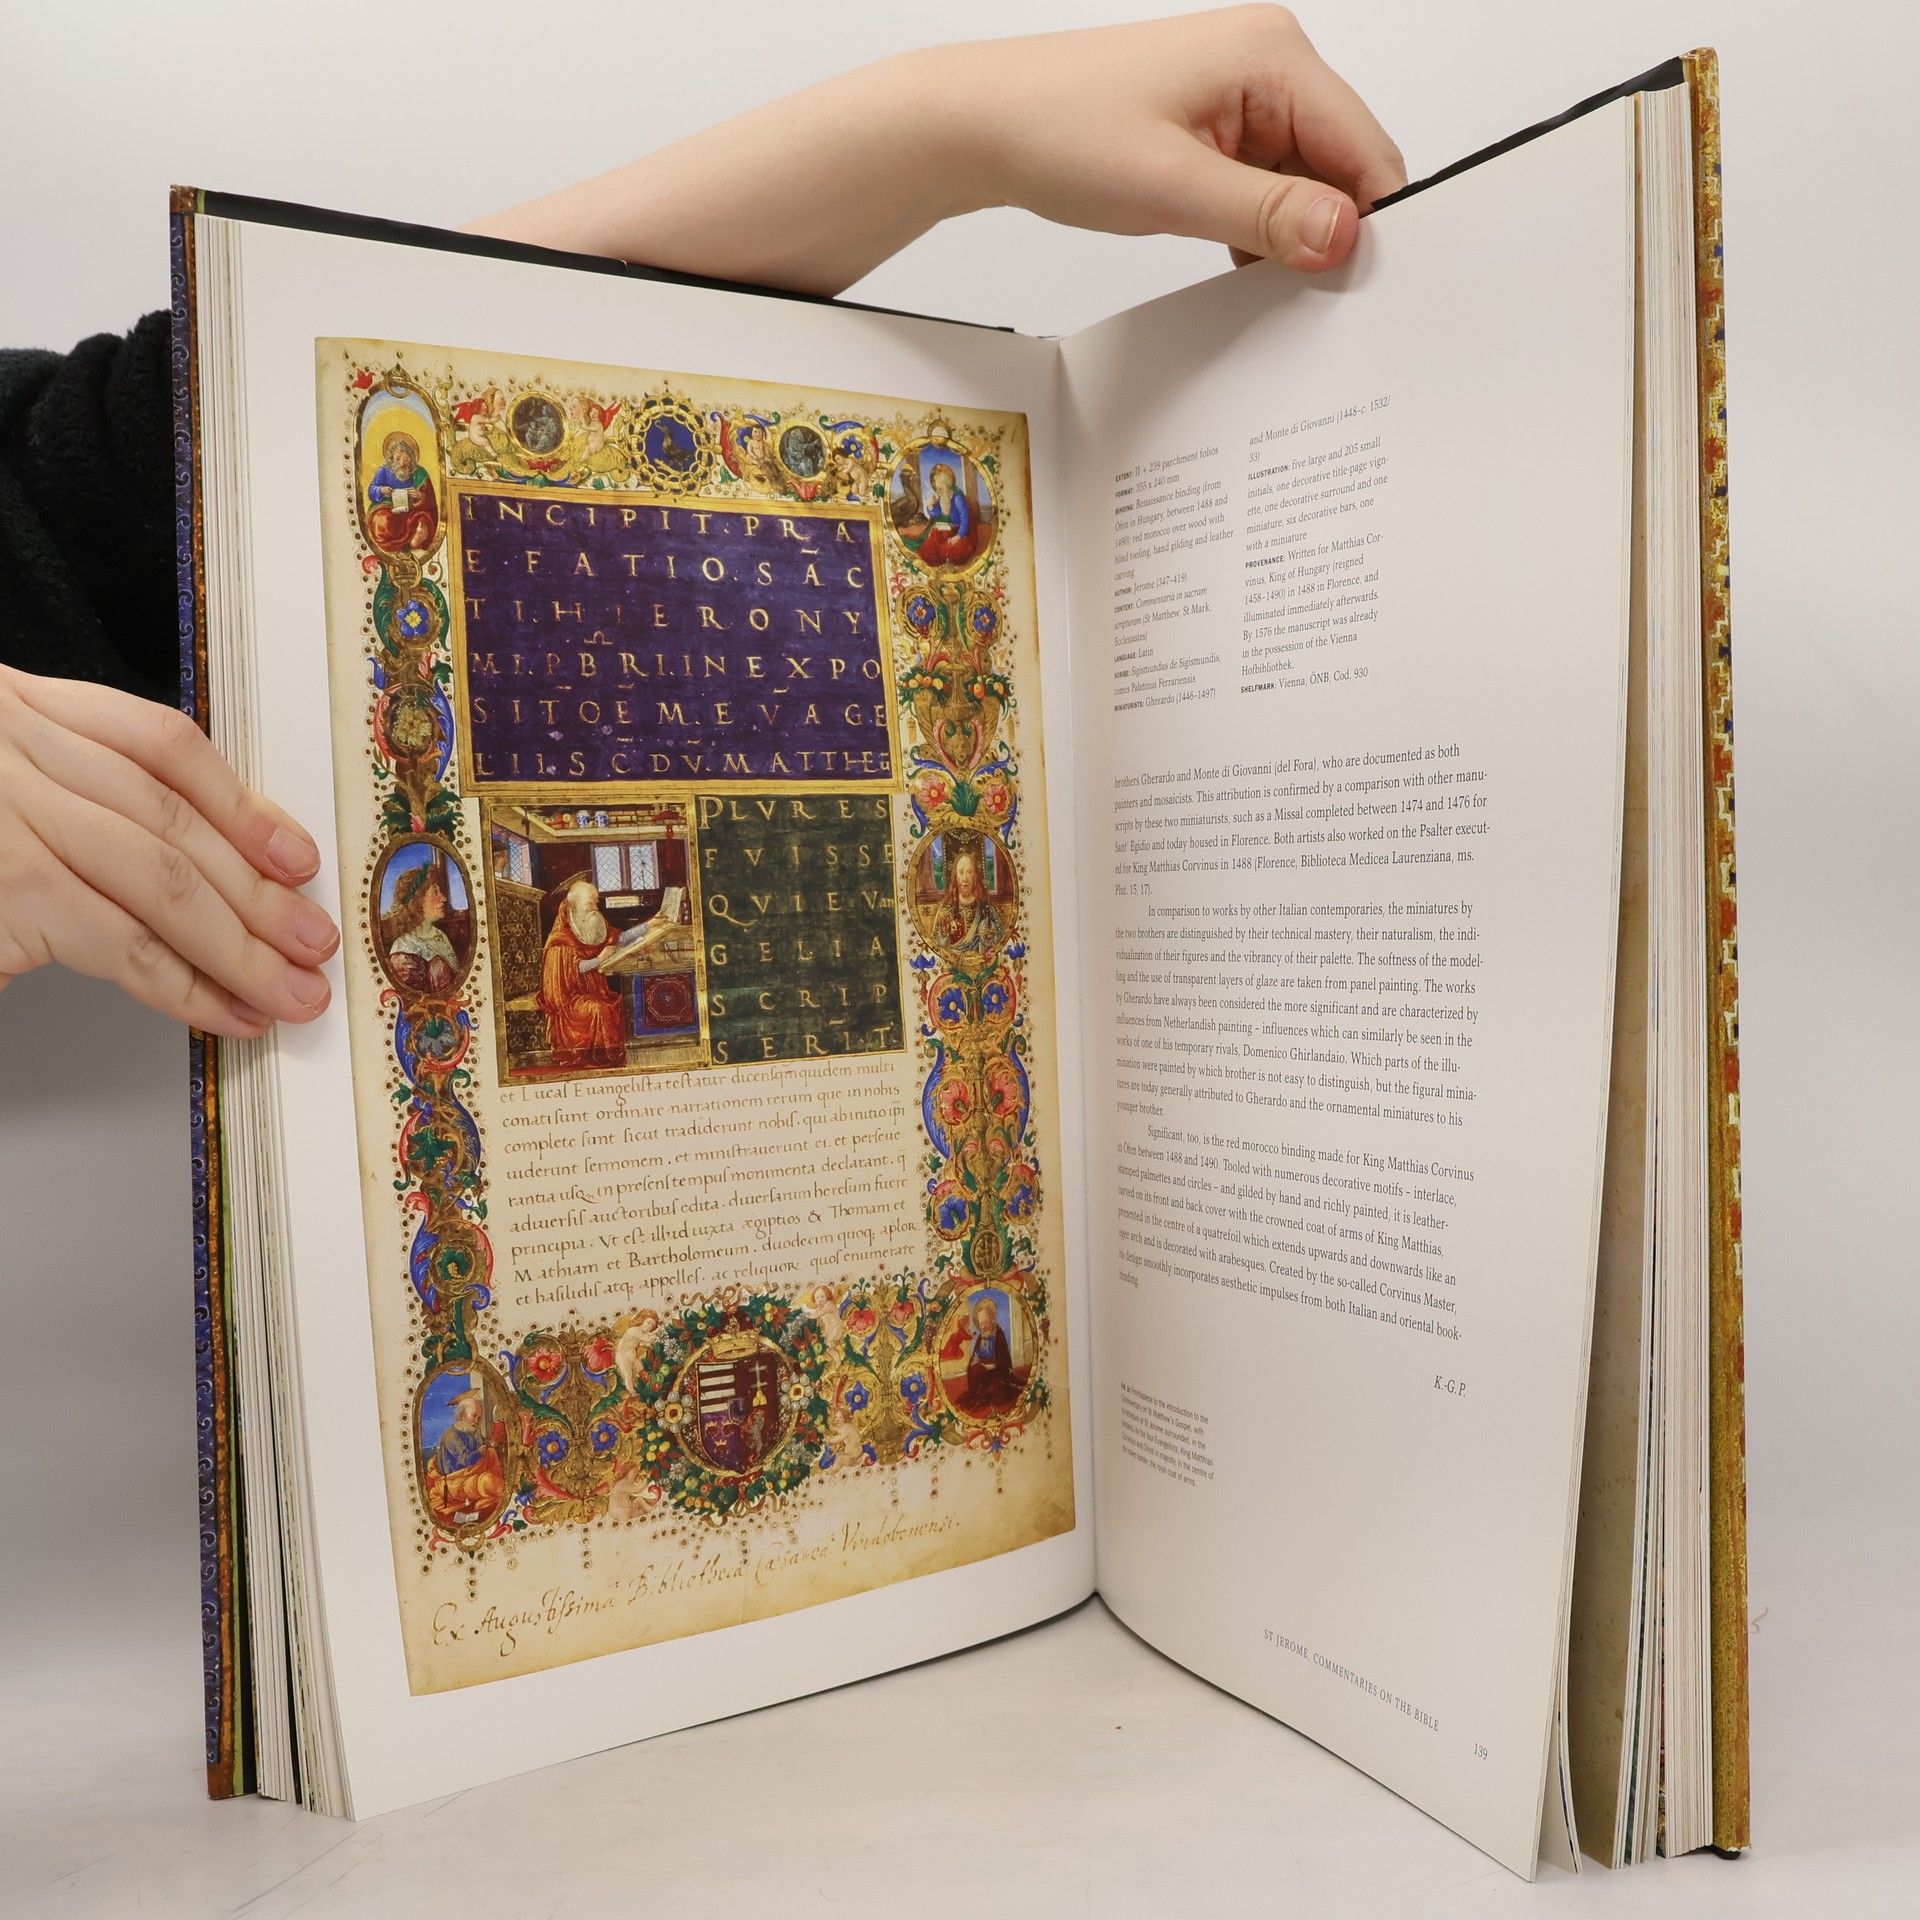 INCIPIT·PRA
EFATIO·SAC
TI·HIERONY
MI·PBRI·INEXPO
SITOEM·EVAGE
LII·SCDVM MATTHEU
PLVRES
FVISSE
QVI EVan
GELIA
SCRIP
SERIT·
et Lucas Euangelista testatur dicens quidem multi
conati sunt ordinare narrationem rerum que in nobis
complete sunt sicut tradiderunt nobis. qui ab initio ipi
uiderunt sermonem. et ministrauerunt ei. et perseue
rantia usq in presens tempus monumenta declarant. q
adiuersis auctoribus edita. diuersarum heresum fuere
principia. Vt est illud iuxta ægiptios & Thomam et
Mathiam et Bartholomeum. duodecim quoq; aplore
et basilidis atq; appelles. ac reliquore quos enumerate
Ex Augustissima Bibliotheca Cæsarea Vindobonensi.
EXTENT: II + 239 parchment folios
FORMAT: 355 x 240 mm
BINDING: Renaissance binding (from
Ofen in Hungary, between 1488 and
1490); red morocco over wood with
blind tooling, hand gilding and leather
carving
AUTHOR: Jerome (347–419)
CONTENT: Commentaria in sacram
scripturam (St Matthew, St Mark,
Ecclesiastes)
LANGUAGE: Latin
SCRIBE: Sigismundus de Sigismundis,
comes Palatinus Ferrariensis
MINIATURISTS: Gherardo (1446–1497)
and Monte di Giovanni (1448–c. 1532/
33)
ILLUSTRATION: five large and 205 small
initials, one decorative title-page vign-
ette, one decorative surround and one
miniature, six decorative bars, one
with a miniature
PROVENANCE: Written for Matthias Cor-
vinus, King of Hungary (reigned
1458–1490) in 1488 in Florence, and
illuminated immediately afterwards.
By 1576 the manuscript was already
in the possession of the Vienna
Hofbibliothek.
SHELFMARK: Vienna, ÖNB, Cod. 930
brothers Gherardo and Monte di Giovanni (del Fora), who are documented as both
painters and mosaicists. This attribution is confirmed by a comparison with other manu-
scripts by these two miniaturists, such as a Missal completed between 1474 and 1476 for
Sant' Egidio and today housed in Florence. Both artists also worked on the Psalter execut-
ed for King Matthias Corvinus in 1488 (Florence, Biblioteca Medicea Laurenziana, ms.
Plut. 15, 17).
In comparison to works by other Italian contemporaries, the miniatures by
the two brothers are distinguished by their technical mastery, their naturalism, the indi-
vidualization of their figures and the vibrancy of their palette. The softness of the model-
ling and the use of transparent layers of glaze are taken from panel painting. The works
by Gherardo have always been considered the more significant and are characterized by
influences from Netherlandish painting – influences which can similarly be seen in the
works of one of his temporary rivals, Domenico Ghirlandaio. Which parts of the illu-
mination were painted by which brother is not easy to distinguish, but the figural minia-
tures are today generally attributed to Gherardo and the ornamental miniatures to his
younger brother.
Significant, too, is the red morocco binding made for King Matthias Corvinus
in Ofen between 1488 and 1490. Tooled with numerous decorative motifs – interlace,
stamped palmettes and circles – and gilded by hand and richly painted, it is leather-
carved on its front and back cover with the crowned coat of arms of King Matthias,
presented in the centre of a quatrefoil which extends upwards and downwards like an
ogee arch and is decorated with arabesques. Created by the so-called Corvinus Master,
its design smoothly incorporates aesthetic impulses from both Italian and oriental book-
binding.
K.-G. P.
Frontispiece to the introduction to the
Commentary on St Matthew's Gospel, with
miniature of St Jerome surrounded, in the
borders, by the four Evangelists, King Matthias
Corvinus and Christ in majesty. In the centre of
the lower border, the royal coat of arms.
ST JEROME, COMMENTARIES ON THE BIBLE
139